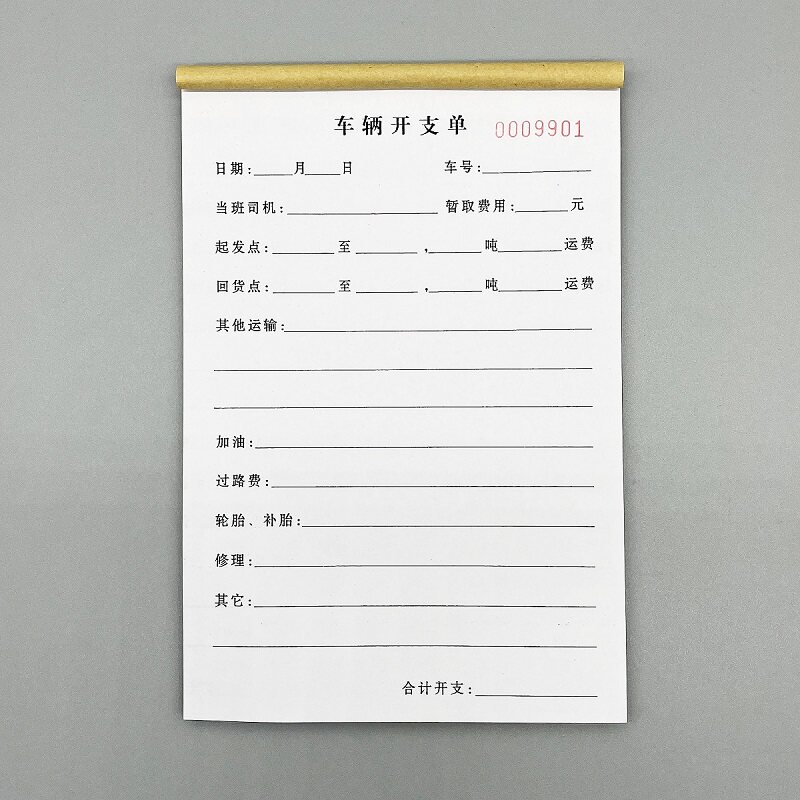 车辆开支单 0009901
日期:_____月_____日 车号:_____
当班司机:_____ 暂取费用:_____元
起发点:_____至_____,_____吨_____运费
回货点:_____至_____,_____吨_____运费
其他运输:_____
加油:_____
过路费:_____
轮胎、补胎:_____
修理:_____
其它:_____
合计开支:_____